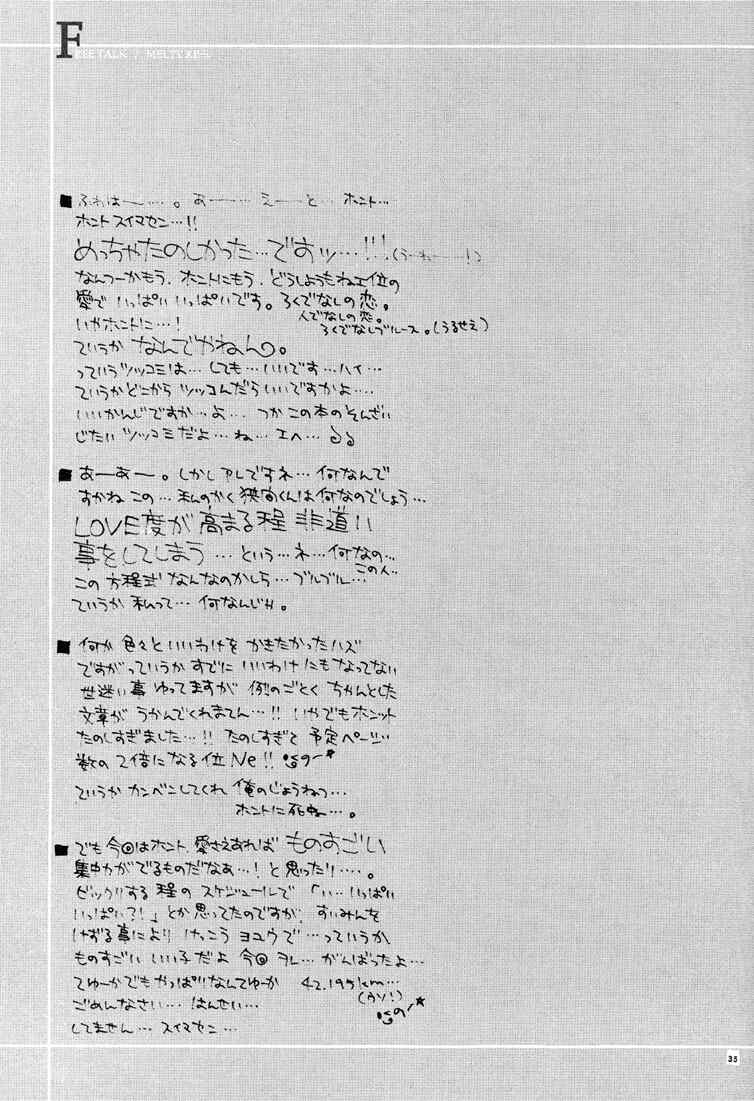 FREE TALK /
■ふわはー…。あー…えーと…ホント…
ホントスイマセン…!!
めっちゃたのしかった…ですッ…!!!(うーねー!)
なんつーかもう、ホントにもう、どうしようもねェ位の
愛でいっぱいいっぱいです。ろくでなしの恋。
人でなしの恋。
いやホントに…!
ろくでなしブルース。(うるせえ)
ていうかなんでやねん。
っていうツッコミは…しても…いいです…ハイ…
ていうかどこからツッコんだらいいですかよ…
いいかんじですか…よ…つかこの本のそんざい
じたいツッコミだよ…ね…エヘ…
■あーあー。しかしアレですネ…何なんで
すかねこの…私のかく狭間くんは何なのでしょう…
LOVE度が高まる程非道い
事をしてしまう…という…ネ…何なの…
この人…
この方程式なんなのかしら…ブルブル…
ていうか私って…何なんじゃ。
■何か色々といいわけをかきたかったハズ
ですがっていうかすでにいいわけにもなってない
世迷い事ゆってますが例のごとくちゃんとした
文章がうかんでくれません…!!いやでもホント
たのしすぎました…!!たのしすぎて予定ページ
数の2倍になる位Ne!!
ていうかカンベンしてくれ俺のじょうねつ…
ホントに死
■でも今回はホント、愛さえあればものすごい
集中力がでるものだなぁ…!と思ったり…。
ビックリする程のスケジュールで「い…いっぱい
いっぱい?!」とか思ってたのですが、すいみんを
けずる事によりけっこうヨユウで…っていうか
ものすごいいい子だよ今回オレ…がんばったよ…
てゆーかでもやっぱりなんてゆーか 42.195km…
(ウソ!)
ごめんなさい…はんせい…
してません…スイマセン…
35